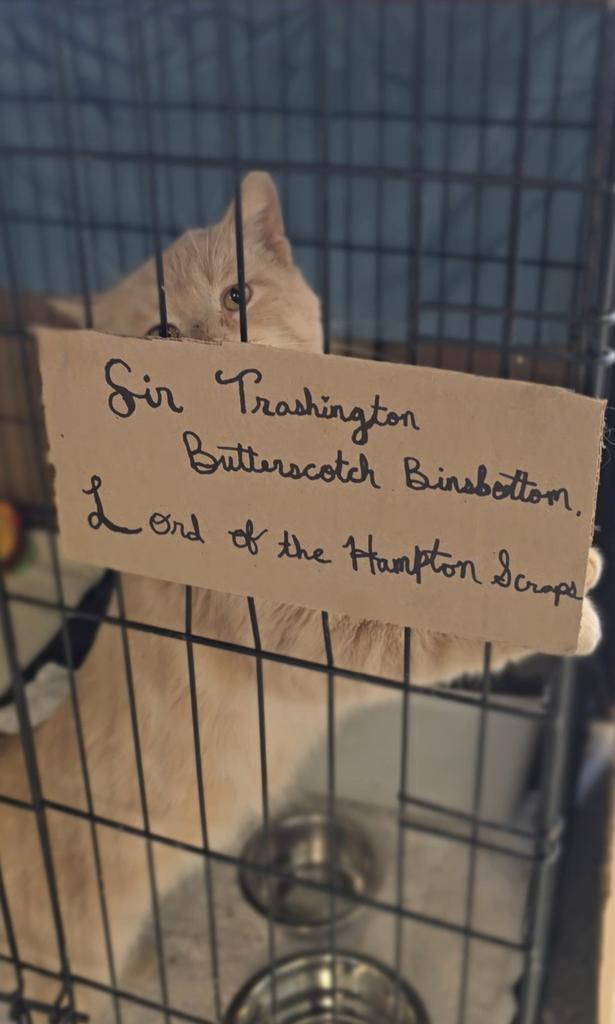 Sir Trashington
Butterscotch Binsbottom.
Lord of the Hampton Scraps